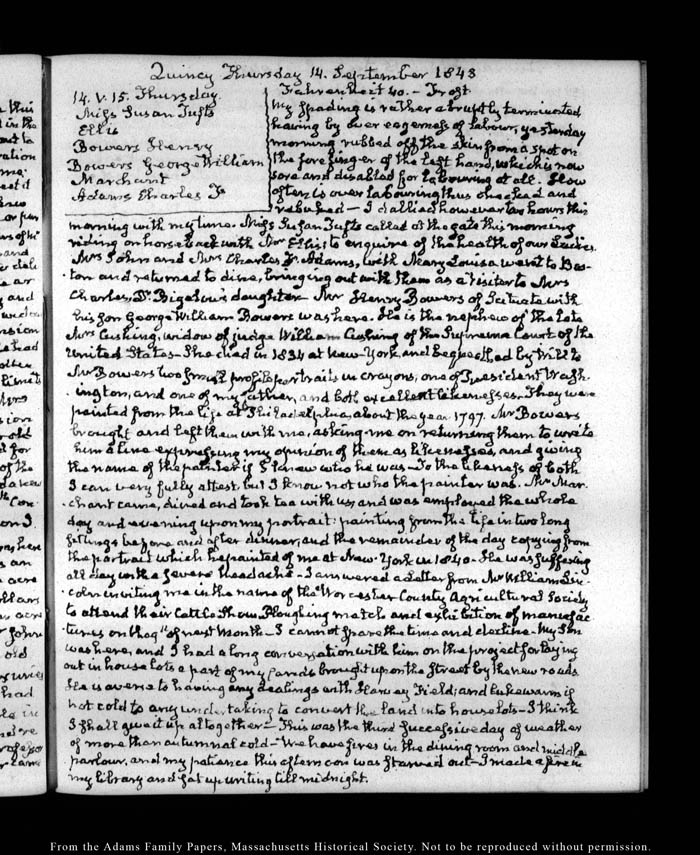 Quincy Thursday 14. September 1843
14. V. 15. Thursday.
Miss Susan Tufts
Ellis
Bowers Henry
Bowers George William
Marchant
Adams Charles F.
Fahrenheit 40. — Frost
My spading is rather abruptly terminated
having by over eagerness of labour, yesterday
morning rubbed off the skin from a spot on
the fore finger of the left hand, which is now
sore and disabled for labouring at all. How
often is over labouring thus checked and
rebuked — I dallied however two hours this
morning with my time. Miss Susan Tufts called at the gate this morning
riding on horseback with Mr Ellis; to enquire of the health of our Ladies.
Mrs John and Mrs Charles F. Adams, with Mary Louisa went to Bos-
ton and returned to dine, bringing out with them as a visitor to Mrs
Charles, Dr. Bigelow's daughter. Mr Henry Bowers of Scituate with
his son George William Bowers was here. He is the nephew of the late
Mrs Cushing, widow of judge William Cushing of the Supreme Court of the
United States — She died in 1834 at New-York and bequeathed by Will to
Mr Bowers two small profile portraits in crayons; one of President Wash-
ington, and one of my father, and both excellent likenesses. They were
painted from the life at Philadelphia, about the year 1797. Mr Bowers
brought and left them with me, asking me on returning them to write
him a line expressing my opinion of them as likenesses, and giving
the name of the painter if I knew who he was — To the likeness of both
I can very fully attest but I know not who the painter was. Mr Mar-
chant came, dined and took tea with us, and was employed the whole
day and evening upon my portrait: painting from the life in two long
sittings before and after dinner, and the remainder of the day copying from
the portrait which he painted of me at New-York in 1840 — He was suffering
all day with a severe headache — I answered a Letter from Mr William Lin-
coln inviting me in the name of the Worcester County Agricultural Society
to attend their Cattle Show, Ploughing match and exhibition of manufac-
tures on the of next Month — I cannot spare the time and decline. My Son
was here, and I had a long conversation with him on the project for laying
out in house lots a part of my lands brought upon the Street by the new roads
He is averse to having any dealings with Harvey Field; and lukewarm if
not cold to any undertaking to convert the land into house lots — I think
I shall give it up altogether — This was the third successive day of weather
of more than autumnal cold — We have fires in the dining room and middle
parlour, and my patience this afternoon was starved out — I made a fire in
my library and sat up writing till midnight.
From the Adams Family Papers, Massachusetts Historical Society. Not to be reproduced without permission.